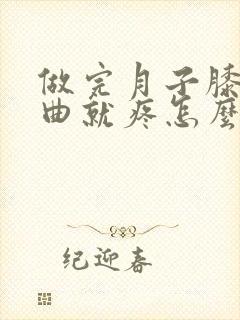 做完月子膝
曲就疼怎麼
纪迎春